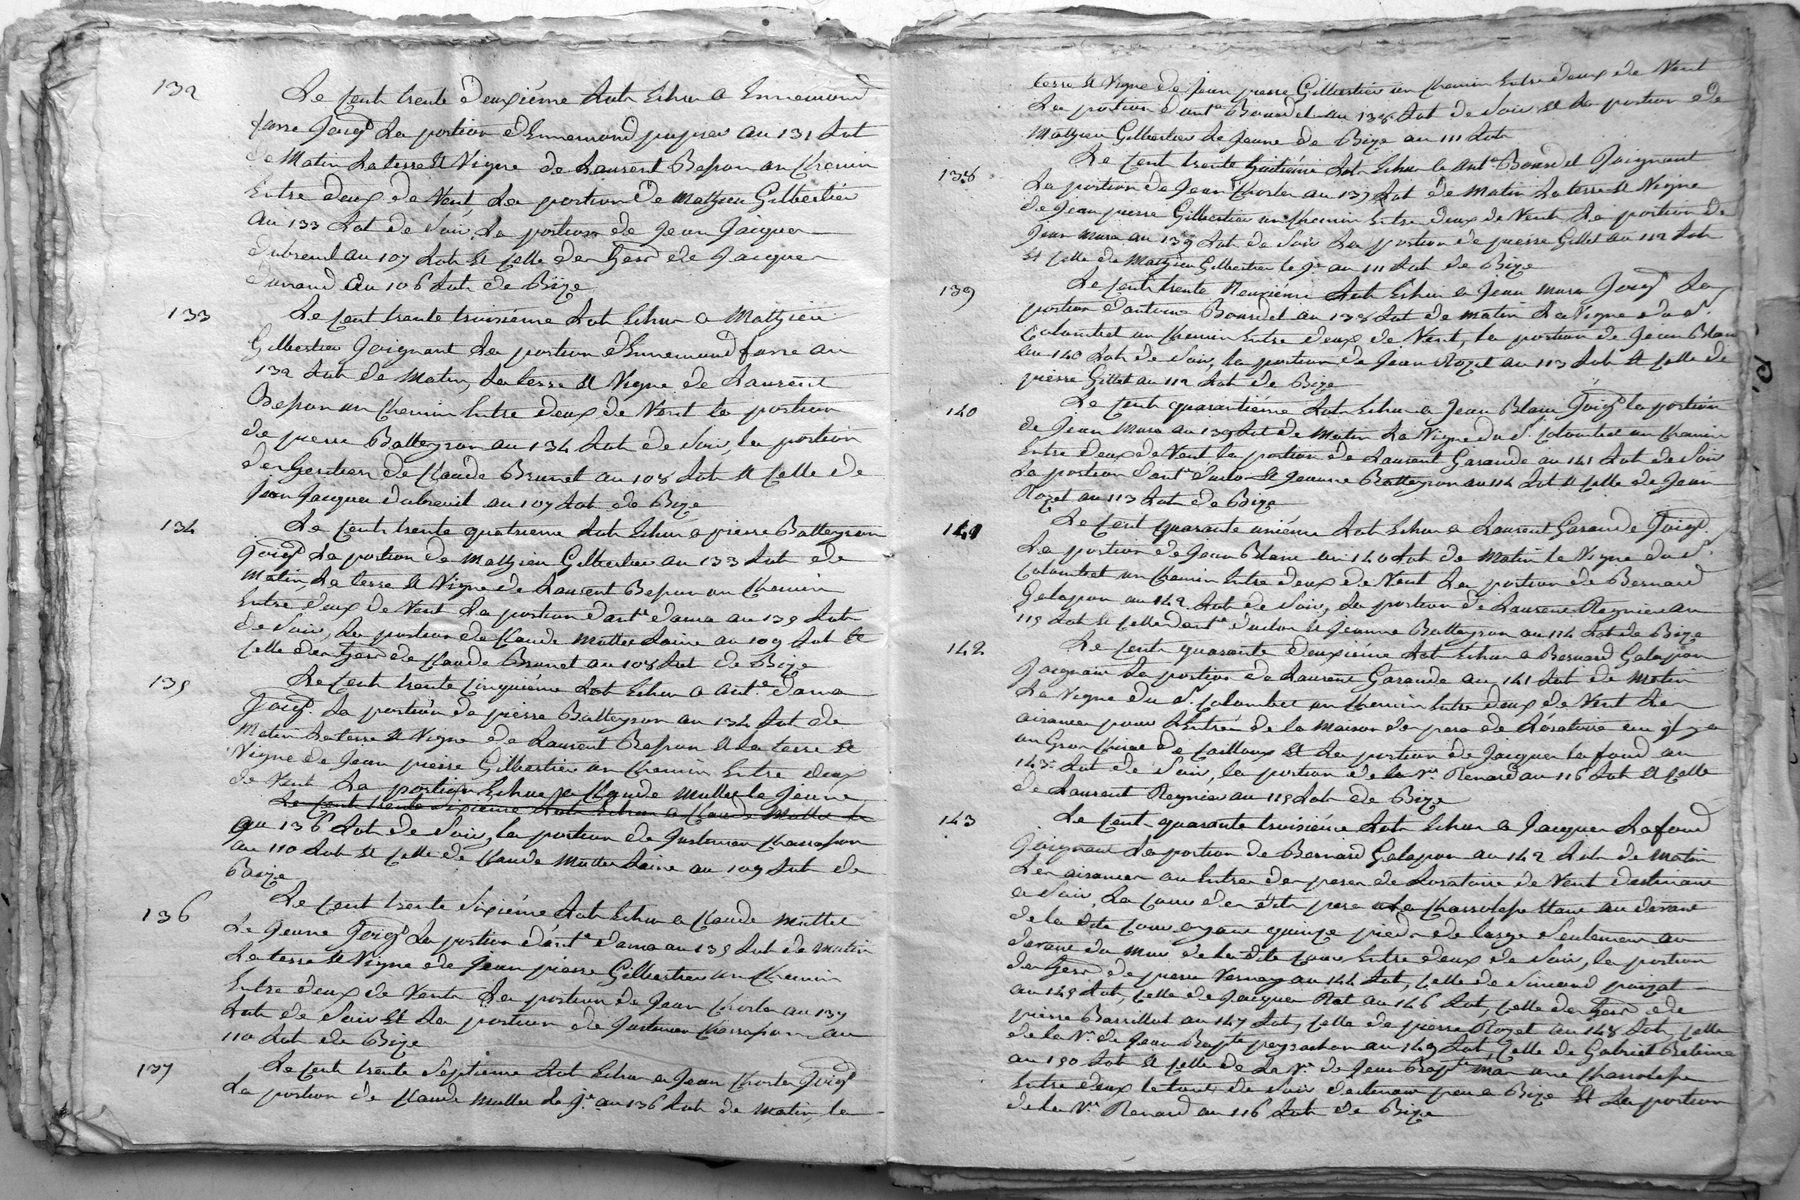 132 Le Cent trente Deuxiéme Lot Echu a Ennemond
farre Joigt La portion d'Ennemond au 131 Lot
de Matin La terre et Vigne de Laurent Besson un Chemin
Entre deux de Vent La portion de Mathieu Gilbertier
au 133 Lot de Soir La portion de Jean Jacques
dubreuil au 107 Lot et Celle des de Jacques
durand au 106 Lot de Bize
133 Le Cent trente troisiéme Lot Echu a Mathieu
Gilbertier Joignant La portion d'Ennemond farre au
132 Lot de Matin, La terre et Vigne de Laurent
Besson un Chemin Entre deux de Vent La portion
de pierre Batteyron au 134 Lot de Soir, la portion
des de Claude Brunet au 108 Lot et Celle de
Jean Jacques dubreuil au 107 Lot de Bize
134 Le Cent trente quatrieme Lot Echu a pierre Batteyron
Joigt La portion de Mathieu Gilbertier au 133 Lot de
Matin, La terre et Vigne de Laurent Besson un Chemin
Entre deux de Vent La portion d'ante dama au 135 Lot
de Soir, La portion de Claude Mutter Laine au 109 Lot et
Celle des de Claude Brunet au 108 Lot de Bize
135 Le Cent trente Cinquiéme Lot Echu a ante dama
Joigt La portion de pierre Batteyron au 134 Lot de
Matin La terre et Vigne de Laurent Besson et La terre et
Vigne de Jean pierre Gilbertier un Chemin Entre deux
de Vent La portion Echue a Claude Mutter le Jeune
Le Cent trente Sixieme Lot Echu a Claude Mutter le
au 136 Lot de Soir, la portion de
au 110 Lot et Celle de Claude Mutter Laine au 109 Lot de
Baize
136 Le Cent trente Sixiéme Lot Echu a Claude Mutter
Le Jeune Joigt La portion d'ante dama au 135 Lot de Matin
La terre et Vigne de Jean pierre Gilbertier un Chemin
Entre deux de Vent La portion de Jean au 137
Lot de Soir et La portion de au
110 Lot de Bize
137 Le Cent trente Septieme Lot Echu a Jean Joigt
La portion de Claude Mutter Le Je au 136 Lot de Matin, La
terre et Vigne de Jean pierre Gilbertier un Chemin Entre deux de Vent
La portion d'ante Bourdel au 138 Lot de Soir et La portion de
Mathieu Gilbertier Le Jeune de Bize au 111 Lot
138 Le Cent trente huitiéme Lot Echu a ante Bourdel Joignant
La portion de Jean au 137 Lot de Matin La terre et Vigne
de Jean pierre Gilbertier un Chemin Entre deux de Vent, La portion de
Jean Mura au 139 Lot de Soir La portion de pierre Gillet au 112 Lot
et Celle de Mathieu Gilbertier le Je au 111 Lot de Bize
139 Le Cent trente Neuviéme Lot Echu a Jean Mura Joigt La
portion d'antoine Bourdel au 138 Lot de Matin La Vigne du Sr
Colombet un Chemin Entre deux de Vent, la portion de Jean Blanc
au 140 Lot de Soir, la portion de Jean Rozet au 113 Lot et Celle de
pierre Gillet au 112 Lot de Bize
140 Le Cent quarantiéme Lot Echu a Jean Blanc Joigt la portion
de Jean Mura au 139 Lot de Matin La Vigne du Sr Colombet un Chemin
Entre deux de Vent la portion de Laurent Garande au 141 Lot de Soir
La portion d'ante et Jeanne Batteyron au 114 Lot et Celle de Jean
Rozet au 113 Lot de Bize
141 Le Cent quarante uniéme Lot Echu a Laurent Garande Joigt
La portion de Jean Blanc au 140 Lot de Matin la Vigne du Sr
Colombet un Chemin Entre deux de Vent La portion de Bernard
Galapon au 142 Lot de Soir, La portion de Laurent Reynier au
115 Lot et Celle d'ante et Jeanne Batteyron au 114 Lot de Bize
142 Le Cent quarante deuxiéme Lot Echu a Bernard Galapon
Joignant La portion de Laurent Garande au 141 Lot de Matin
La Vigne du Sr Colombet un Chemin Entre deux de Vent Les
aisances pour L'Entrée de la Maison des peres de Loratoire ou il y a
un Gros de Cailloux et La portion de Jacques lafond au
143e Lot de Soir, la portion de la Ve Renard au 116 Lot et Celle
de Laurent Reynier au 115 Lot de Bize
143 Le Cent quarante troisiéme Lot Echu a Jacques Lafond
Joignant La portion de Bernard Galapon au 142 Lot de Matin
Les aisances au Entrée des peres de Loratoire de Vent
a Soir, La Cour des dits peres au devant
de la dite Cour ayant quinze pieds de large Seulement au
devant du Mur de la dite Cour Entre deux de Soir, la portion
des de pierre Vernay au 144 Lot, Celle de Simond
au 145 Lot, Celle de Jacques Rat au 146 Lot, Celle des de
pierre Barrillot au 147 Lot, Celle de pierre Rozet au 148 Lot, Celle
de la Ve de Jean Bapte au 149 Lot, Celle de Gabriel
au 150 Lot et Celle de La Ve de Jean Bapte une
Entre deux le tout de Soir a Bize et La portion
de la Ve Renard au 116 Lot de Bize